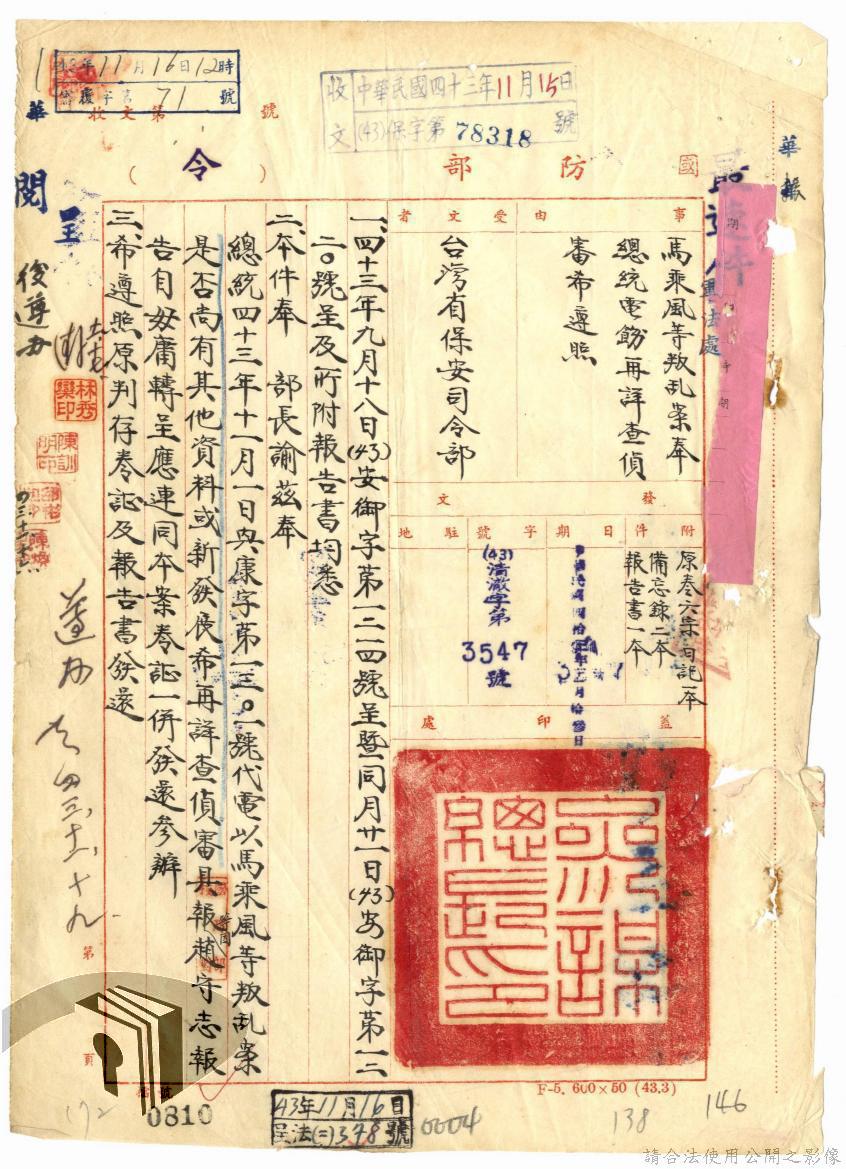 收文 中華民國四十三年11月15日
(43)保字第78318號
43年11月16日12時
收文第71號
國防部
(令)
事由
馬乘風等叛乱案奉
總統電飭再詳查偵
審希遵照
受文者
台灣省保安司令部
附件
原卷六宗 一本
備忘錄二本
報告書一本
發文
日期
字號
(43)清澈字第
3547
號
駐地
蓋印處
參謀總長印
一、四十三年九月十八日(43)安御字第一二一四號呈暨同月廿一日(43)安御字第一二
二〇號呈及所附報告書均悉
二、本件奉 部長諭茲奉
總統四十三年十一月一日興康字第一三〇一號代電以馬乘風等叛乱案
是否尚有其他資料或新發展希再詳查偵審具報趙守志報
告自毋庸轉呈應連同本案卷証一併發還參辦
三、希遵照原判存卷証及報告書發還
閱
呈
林秀欒印
陳訓明印
華報
軍法處
第 頁
F-5. 600×50 (43.3)
0810
43年11月16日
呈法(二)1348號
0004
172
138
146
請合法使用公開之影像